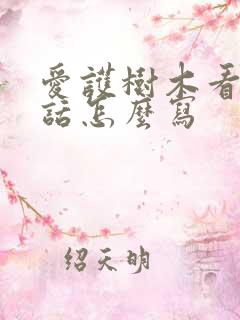 愛護樹木看
話怎麼寫
紹天明